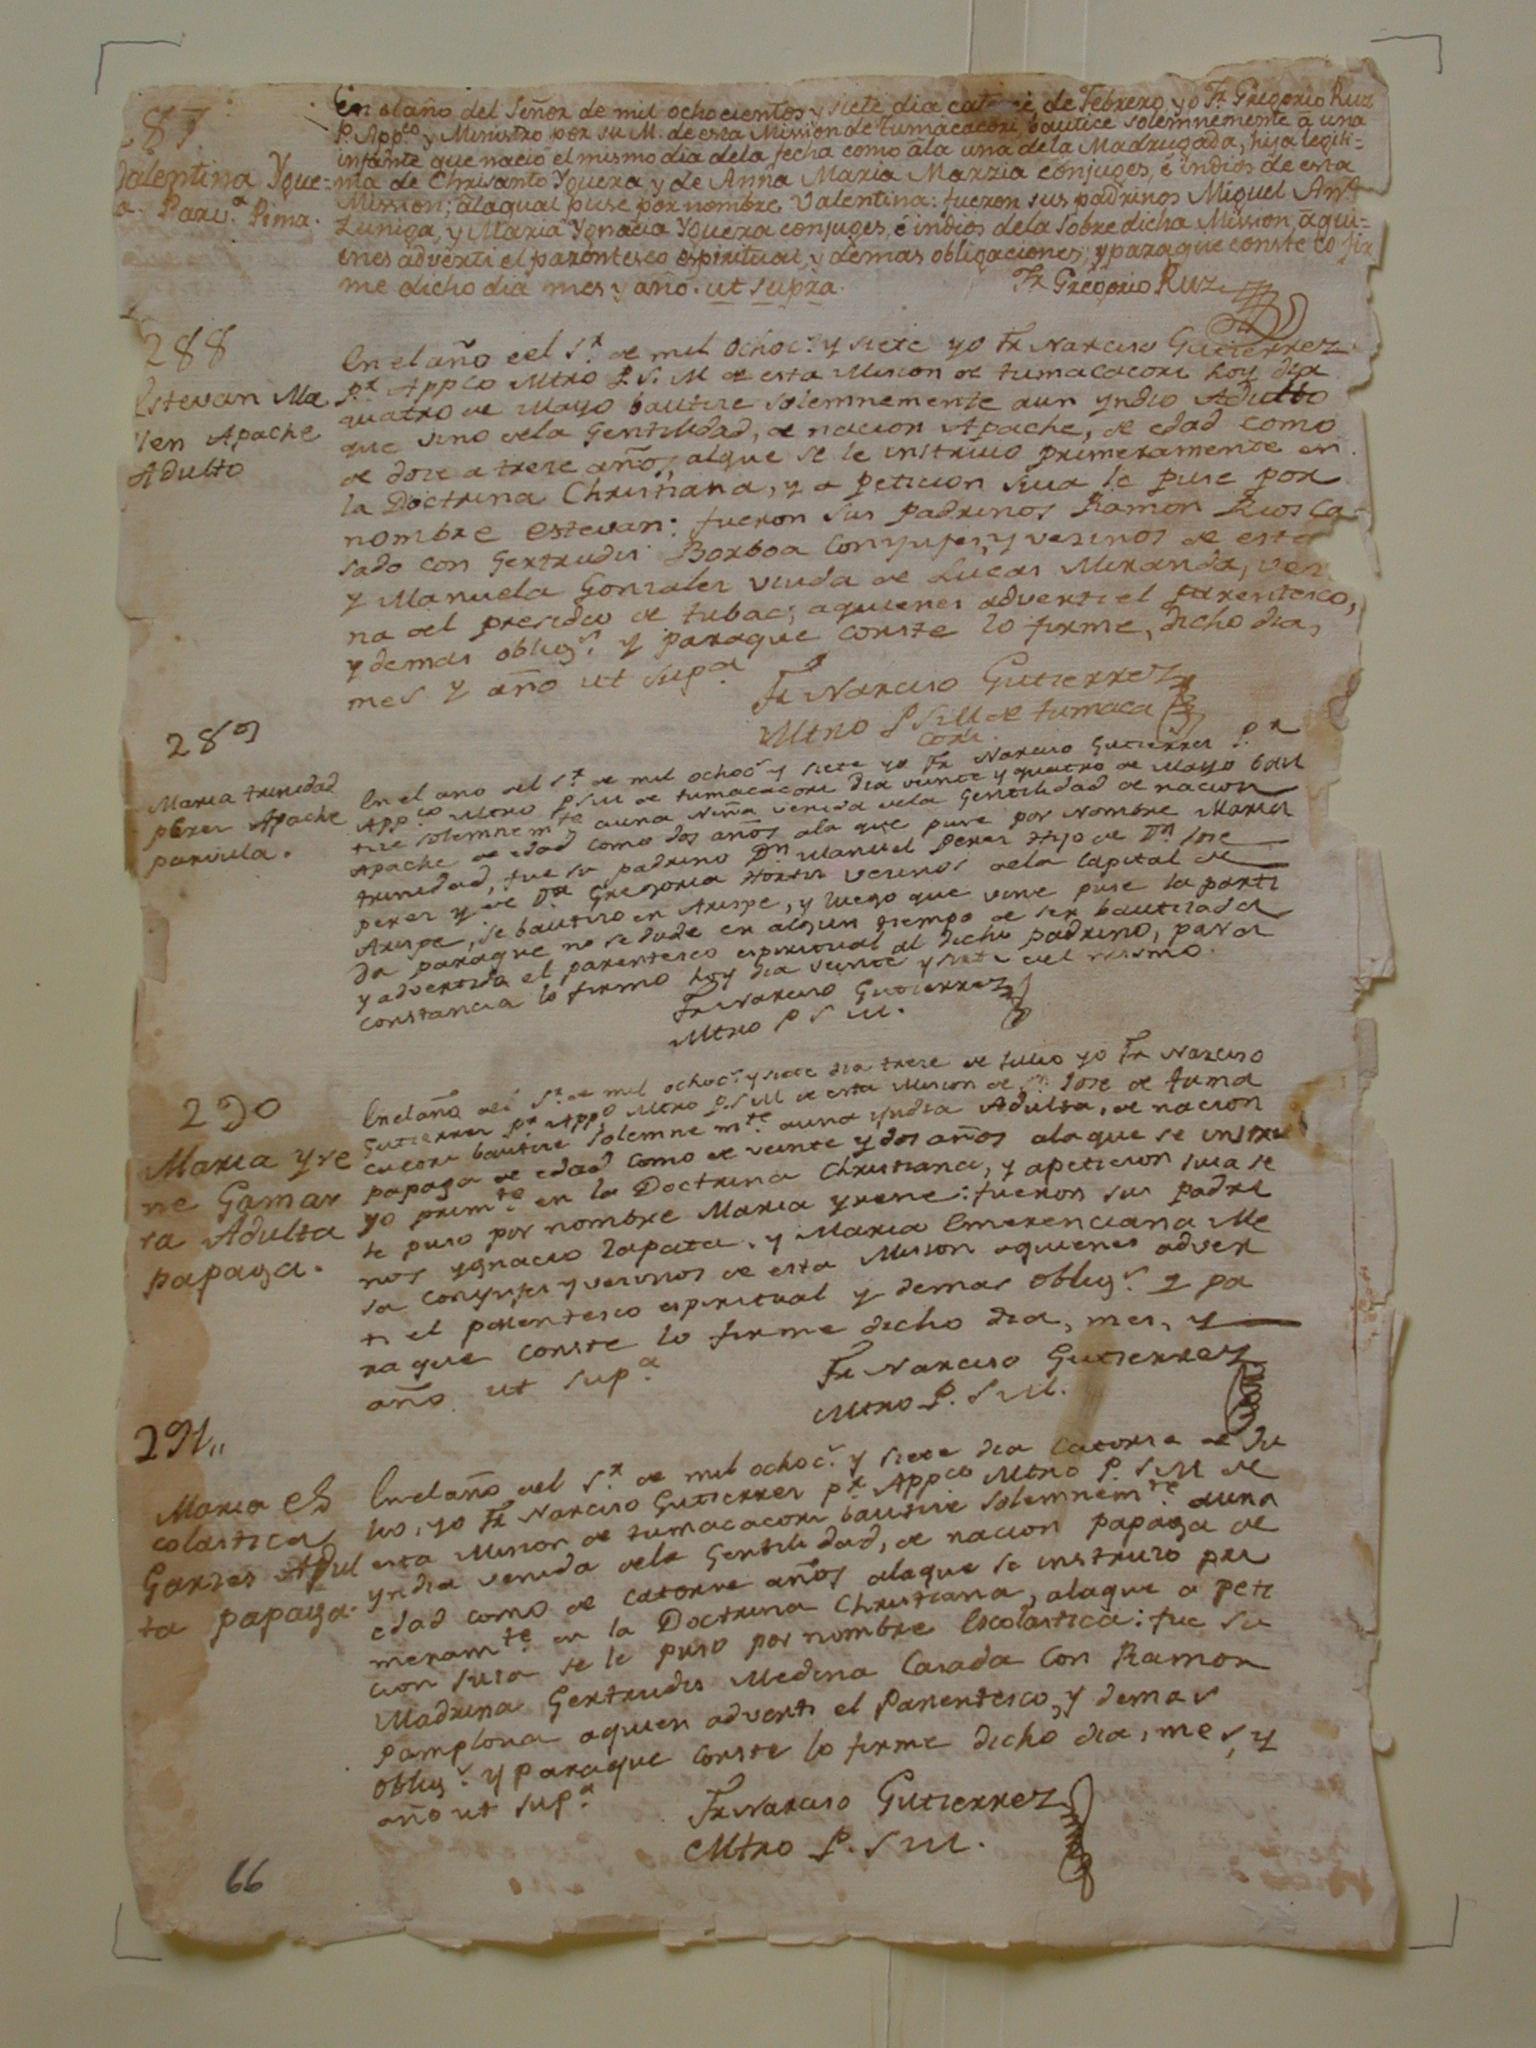 287
Valentina Ygue-
a Parv.ª Pima.
En el año del Señor de mil ochocientos y siete dia catorce de Febrero, yo Fr. Gregorio Ruiz
P. App.co y Ministro por su M. de esta Mission de Tumacacori, bautice solemnemente a una
infante que naciò el mismo dia dela fecha como àla una dela Madrugada, hija legiti-
ma de Chrisanto Yguera, y de Anna Maria Marzia conjuges, è indios de esta
Mission; àlaqual puse por nombre Valentina: fueron sus padrinos Miguel Ant.º
Zuniga, y Maria Ygnacia Yguera conjuges, è indios dela sobre dicha Mission, à qui-
enes adverti el parentesco espiritual, y demas obligaciones; y paraque conste lo fir
me dicho dia mes y año. ut supra.
Fr. Gregorio Ruiz
288
Estevan Ma
llen Apache
Adulto
En el año del S.r de mil ochoc.s y siete yo Fr. Narciso Gutierrez
P.r Appco Mtro P. S. M de esta Mision de tumacacori hoy dia
quatro de Mayo bautise solemnemente aun yndio Adulto
que vino dela Gentilidad, de nacion Apache, de edad como
de dose a trese años, alque se le instruio primeramente en
la Doctrina Christiana, y a peticion suia le puse por
nombre estevan: fueron sus padrinos Ramon Rios Ca-
sado con Gertrudis Borboa Conyujes, y vesinos de este
y Manuela Gonsales viuda de Lucas Miranda, vesi
na del presidio de tubac; aquienes adverti el parentesco,
y demas oblig.s y paraque conste lo firme, dicho dia,
mes y año ut sup.a
Fr Narciso Gutierrez
Mtro P S. M de tumaca
cori.
289
Maria trinidad
peres Apache
parvula.
En el año del S.r de mil ochoc.s y siete yo Fr. Narciso Gutierres P.r
App.co Mtro P S M de tumacacori dia veinte y quatro de Mayo bau
tise solemnem.te auna Niña venida dela Gentilidad de nacion
Apache de edad como dos años ala que puse por Nombre Maria
trinidad, fue su padrino D.n Manuel Peres Hijo de D.n Jose
peres y de D.a Gregoria vesinos dela Capital de
Arispe, se bautiso en Arispe, y luego que vine puse la parti
da paraque no se dude en algun tiempo de ser bautisada
y advertida el parentesco espiritual al dicho padrino, para
constancia lo firmo hoy dia veinte y siete del mismo.
Fr Narciso Gutierrez
Mtro P S M.
290
Maria yre
ne Gamar
ra Adulta
papaga.
En el año del S.r de mil ochoc.s y siete dia trese de Julio yo Fr Narciso
Gutierres P.r App.o Mtro P. S M de esta Mision de S. Jose de tuma
cacori bautise solemnem.te auna yndia Adulta, de nacion
papaga de edad como de veinte y dos años alaque se instru
yo prim.te en la Doctrina Christiana, y apeticion suia se
le puso por nombre Maria yrene: fueron sus padri
nos ygnacio Zapata, y Maria Emerenciana Me
sa Conyujes y vesinos de esta Mision aquienes adver
ti el parentesco espiritual y demas oblig.s y pa
raque conste lo firme dicho dia, mes, y
año ut sup.a
Fr Narciso Gutierrez
Mtro P. S M.
291,,
Maria es
colastica
Garses Adul
ta papaga.
En el año del S.r de mil ochoc.s y siete dia catorse de Ju
lio, yo Fr Narciso Gutierres P.r Appco Mtro P. S M de
esta Mision de tumacacori bautise solemnem.te auna
yndia venida dela Gentilidad, de nacion papaga de
edad como de catorse años alaque se instruio pri
meram.te en la Doctrina Christiana, alaque a peti
cion suia se le puso por nombre Escolastica: fue su
Madrina Gertrudis Medina Casada Con Ramon
Pamplona aquien adverti el Parentesco, y demas
oblig.s y paraque conste lo firme dicho dia, mes, y
año ut sup.a
Fr Narciso Gutierrez
Mtro P. S M.
66